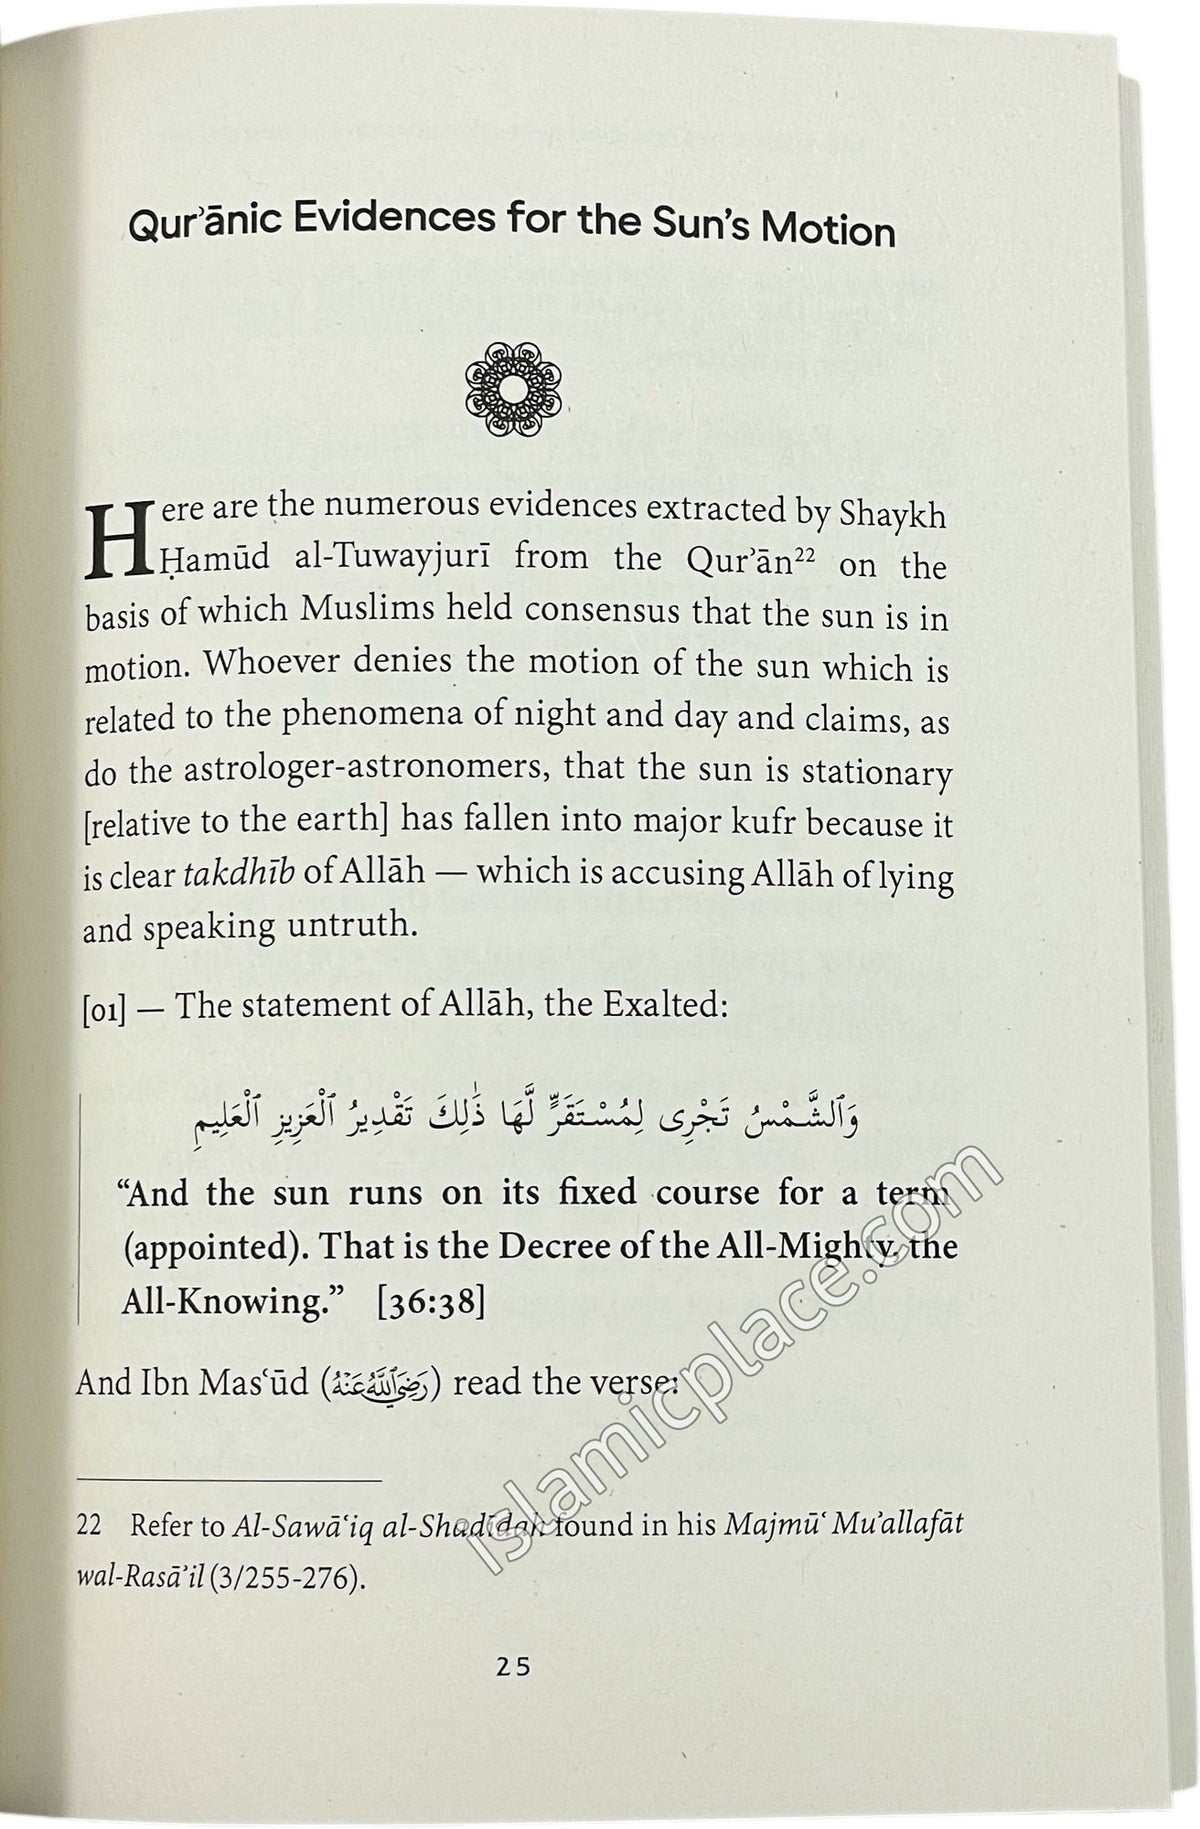 Qurʾānic Evidences for the Sun’s Motion
Here are the numerous evidences extracted by Shaykh
Ḥamūd al-Tuwayjurī from the Qurʾān²² on the
basis of which Muslims held consensus that the sun is in
motion. Whoever denies the motion of the sun which is
related to the phenomena of night and day and claims, as
do the astrologer-astronomers, that the sun is stationary
[relative to the earth] has fallen into major kufr because it
is clear takdhīb of Allāh — which is accusing Allāh of lying
and speaking untruth.
[01] — The statement of Allāh, the Exalted:
وَٱلشَّمْسُ تَجْرِى لِمُسْتَقَرٍّ لَّهَا ذَٰلِكَ تَقْدِيرُ ٱلْعَزِيزِ ٱلْعَلِيمِ
“And the sun runs on its fixed course for a term
(appointed). That is the Decree of the All-Mighty, the
All-Knowing.” [36:38]
And Ibn Masʿūd (رَضِيَ ٱللَّهُ عَنْهُ) read the verse:
22 Refer to Al-Sawāʿiq al-Shadīdah found in his Majmūʿ Muʾallafāt
wal-Rasāʾil (3/255-276).
25
islamicplace.com